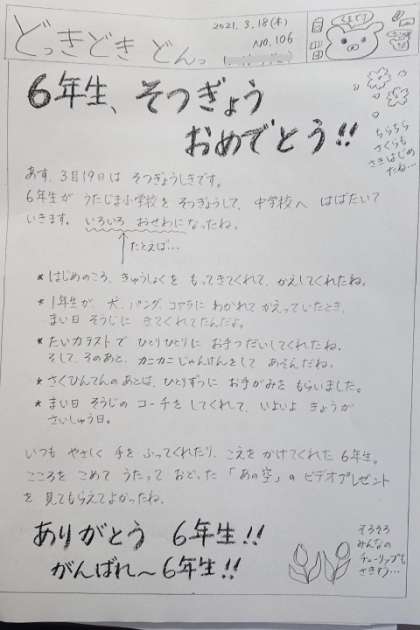 どっきどき どんっ
2021.3.18(木)
NO.106
6年生、そつぎょう
おめでとう!!
ちらちら
さくらも
さきはじめ
たね…
あす、3月19日は そつぎょうしきです。
6年生が うたじま小学校を そつぎょうして、中学校へ はばたいて
いきます。いろいろ おせわになったね。
たとえば…
* はじめのころ、きゅうしょくを もってきてくれて、かえしてくれたね。
* 1年生が、犬、パンダ、コアラに わかれて かえっていたとき、
まい日 そうじに きてくれてたんだよ。
* たいカラストで ひとりひとりに お手つだいしてくれたね。
そして、そのあと、カニカニじゃんけんをして あそんだね。
* さくひんてんの あとは、ひとりずつに お手がみを もらいました。
* まい日 そうじの コーチを してくれて、いよいよ きょうが
さいしゅう日。
いつも やさしく 手を ふってくれたり、こえを かけてくれた 6年生。
こころを こめて うたって おどった 「あの空」の ビデオプレゼント
を 見てもらえて よかったね。
ありがとう 6年生!!
がんばれ〜6年生!!
そろそろ
みんなの
チューリップも
さきそう…